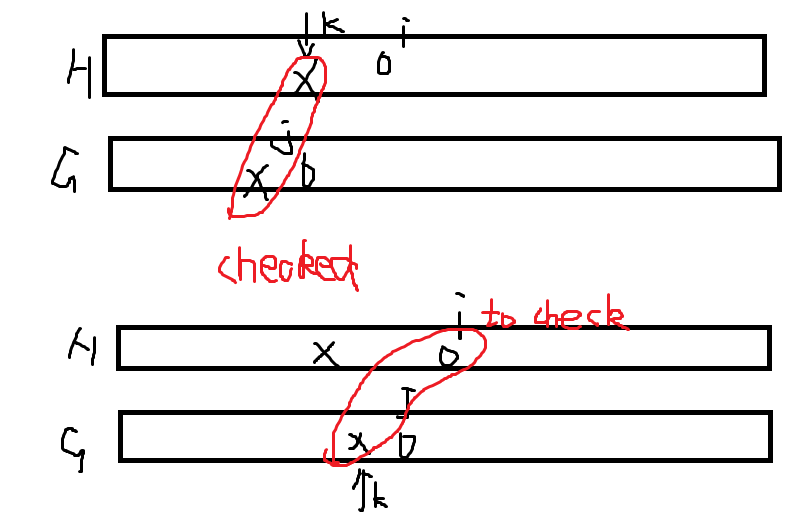 k i
H X o
j
G X b
checked
i to check
H x o
J
G x b
k